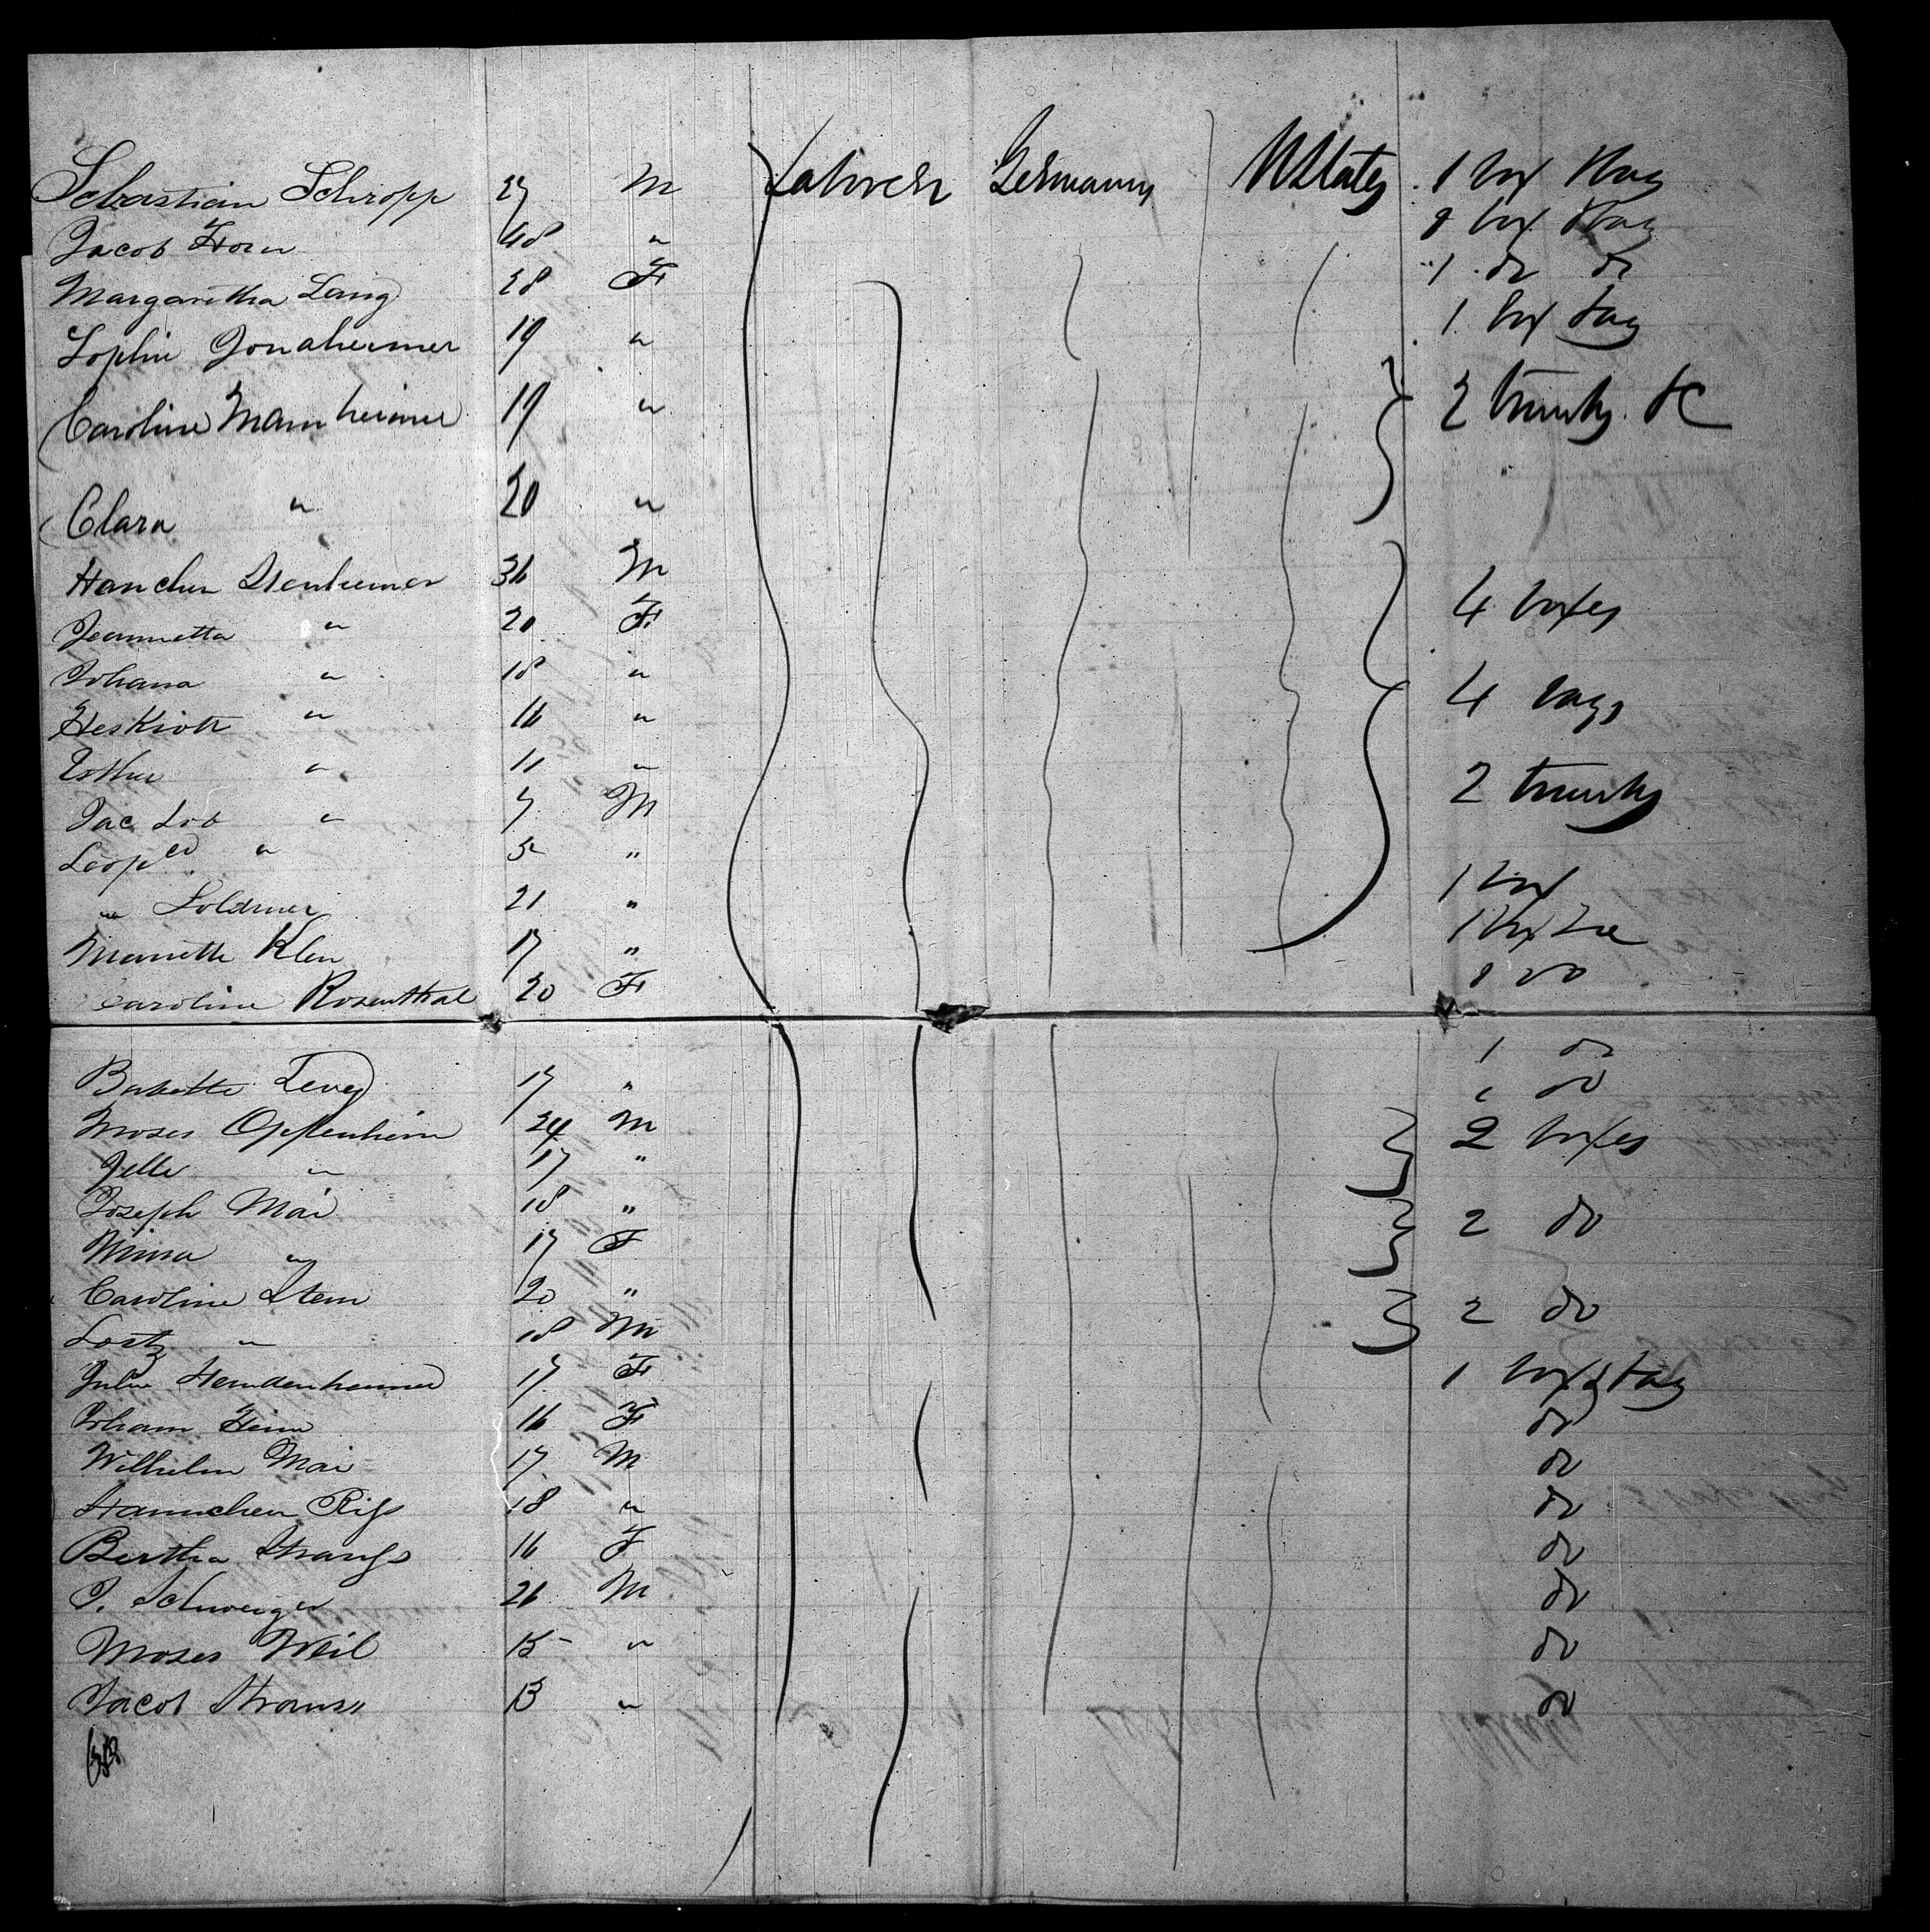 Sebastian Schropp 27 M Labourer Germany U States 1 box 1 bag
Jacob Horn 48 " 1 box 1 bag
Margaretha Lang 28 F 1 do do
Sophie Jonaheimer 19 " 1 box bag
Caroline Mannheimer 19 " 2 trunks &c
Clara " 20 "
Hanchen Stenheimer 36 M 4 boxes
Jeannetta " 20 F
Johana " 18 " 4 bags
" 16 "
Esther " 11 " 2 trunks
Jacob " 7 M
Leopd " 5 "
" Soldmer 21 " 1 box
Manette Klen 17 " 1 box
Caroline Rosenthal 20 F 1 do
Babette Levey 17 " 1 do
Moses Oppenheim 24 M 2 boxes
Jette " 17 "
Joseph Mai 18 " 2 do
Mina " 17 F
Caroline Stern 20 " 2 do
" 18 M
Julie 17 F 1 box & bag
Joham Heim 16 F do
Wilhelm Mai 17 M do
Hannchen Riss 18 " do
Bertha Strauss 16 F do
J. Schweiger 26 M do
Moses Weil 15 " do
Jacob Strauss 13 " do